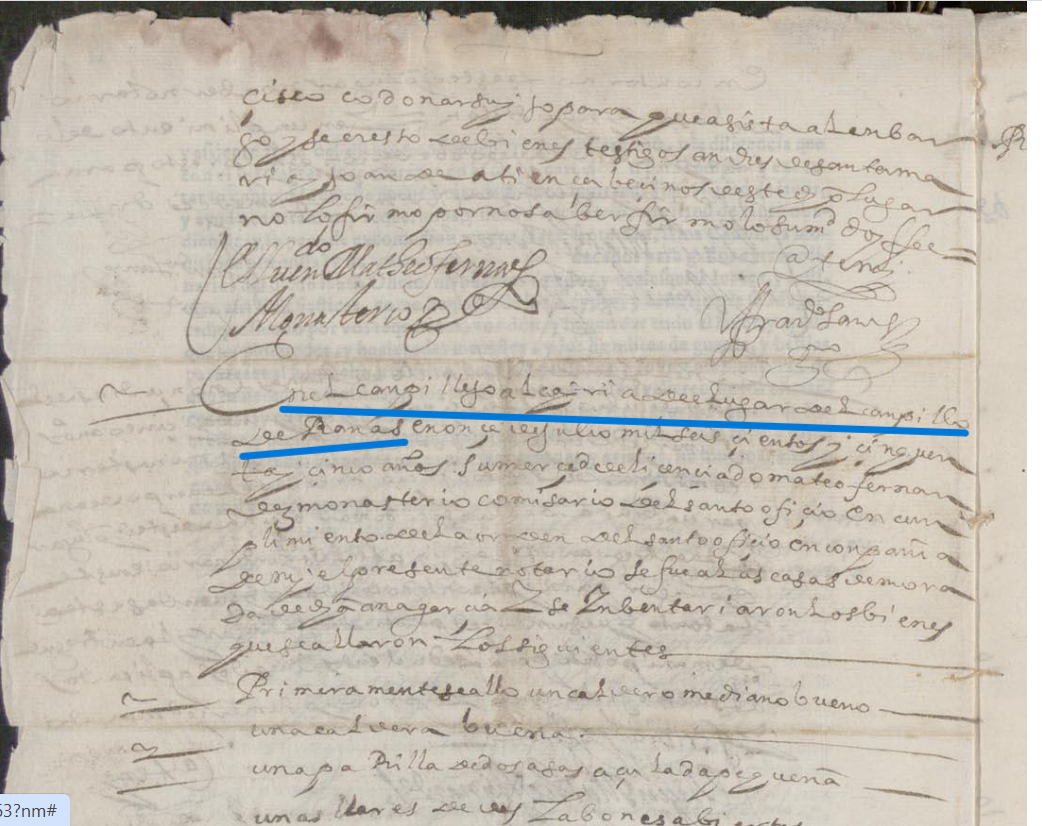 cisco codonar suyo para que asista al enbar
go y secresto de bienes testigos andres de santama
ria y Joan de atiença beçinos de este dho lugar
no lo firmo por no saber firmolo su md doy ffee
ldo
Juen Matheo fernadz
Monasterio
ante my
En el canpillejo alqueria de el lugar del canpillo
de Ranas en onçe de Julio mil seis çientos y çinquen
ta y cinco años su merced de el licenciado mateo fernan
dez monasterio comisario del santo ofiçio en cun
plimiento de la orden del santo ofiçio en conpañia
de my el presente notario se fue a las casas de mora
da de dha ana garcia Y se Inbentariaron los bienes
que se allaron Los siguientes
Primeramente se allo un caldero mediano bueno
una caldera buena
una pa Rilla de dos asas açulada pequeña
unas llares de eslabones abiertos
53?nm#